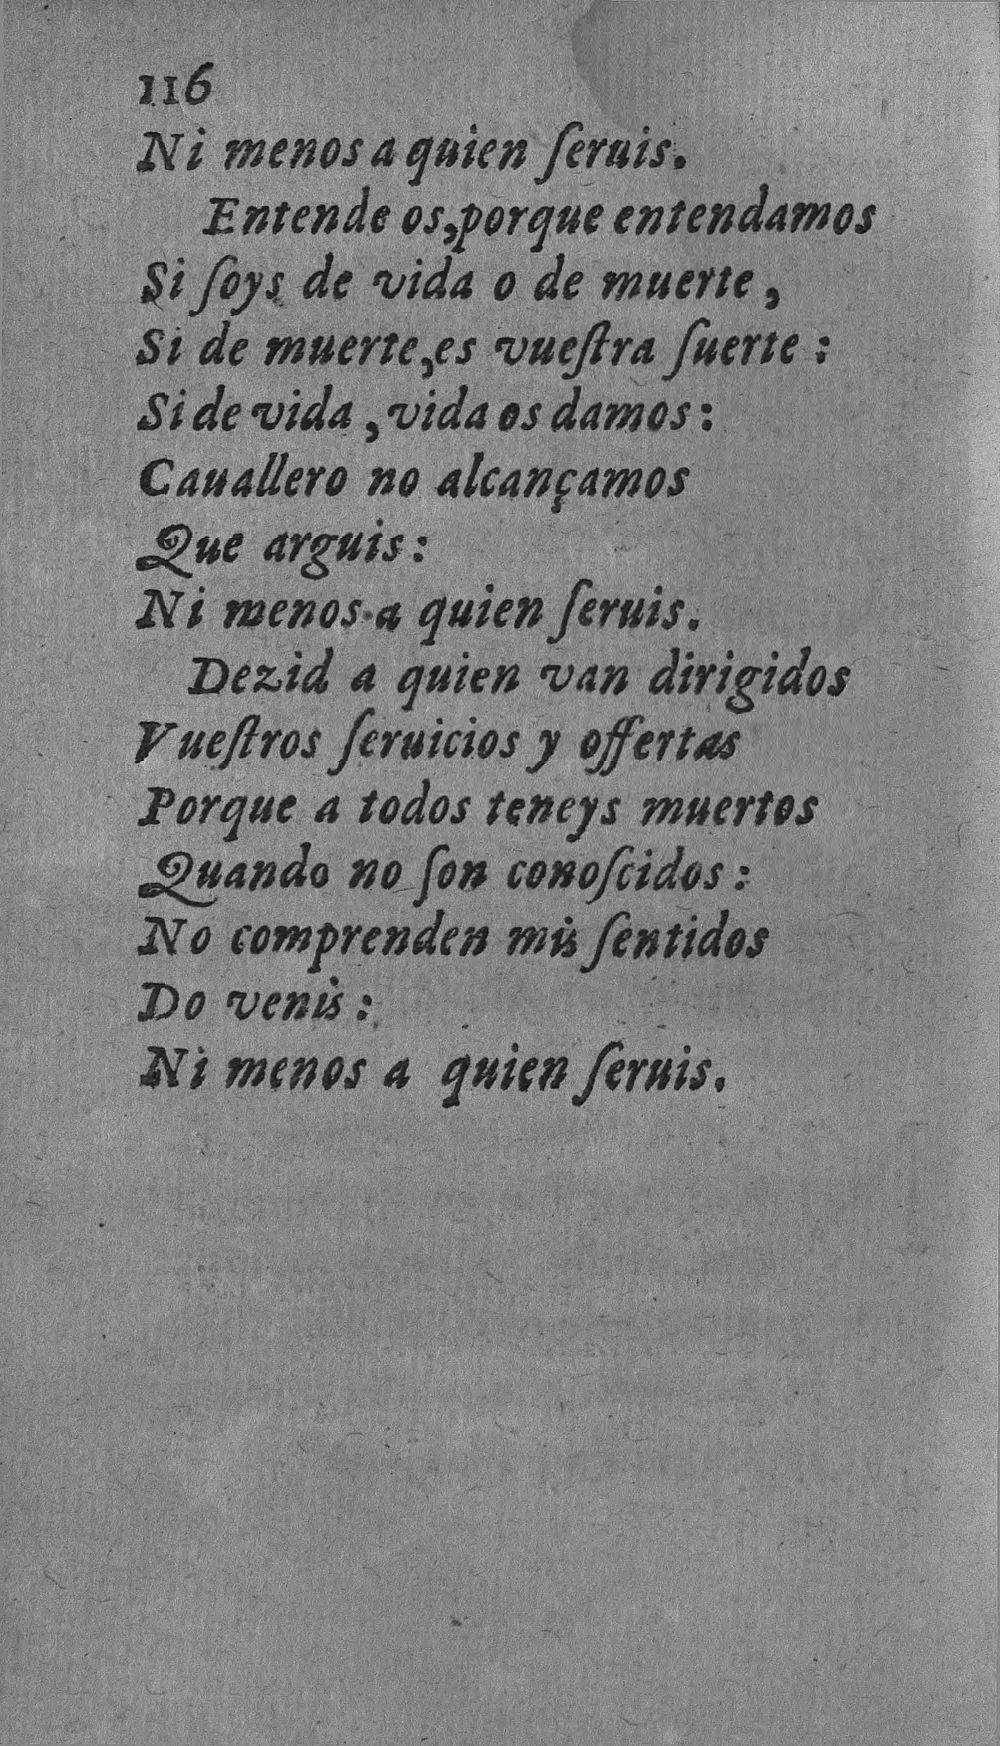 116
Ni menos a quien ſeruis.
Entende os,porque entendamos
Si ſoys de vida o de muerte ,
Si de muerte,es vueſtra ſuerte :
Si de vida , vida os damos :
Cauallero no alcançamos
Que arguis :
Ni menos a quien ſeruis.
Dezid a quien van dirigidos
Vueſtros ſeruicios y offertas
Porque a todos teneys muertos
Quando no ſon conoſcidos :
No comprenden mis ſentidos
Do venis :
Ni menos a quien ſeruis.